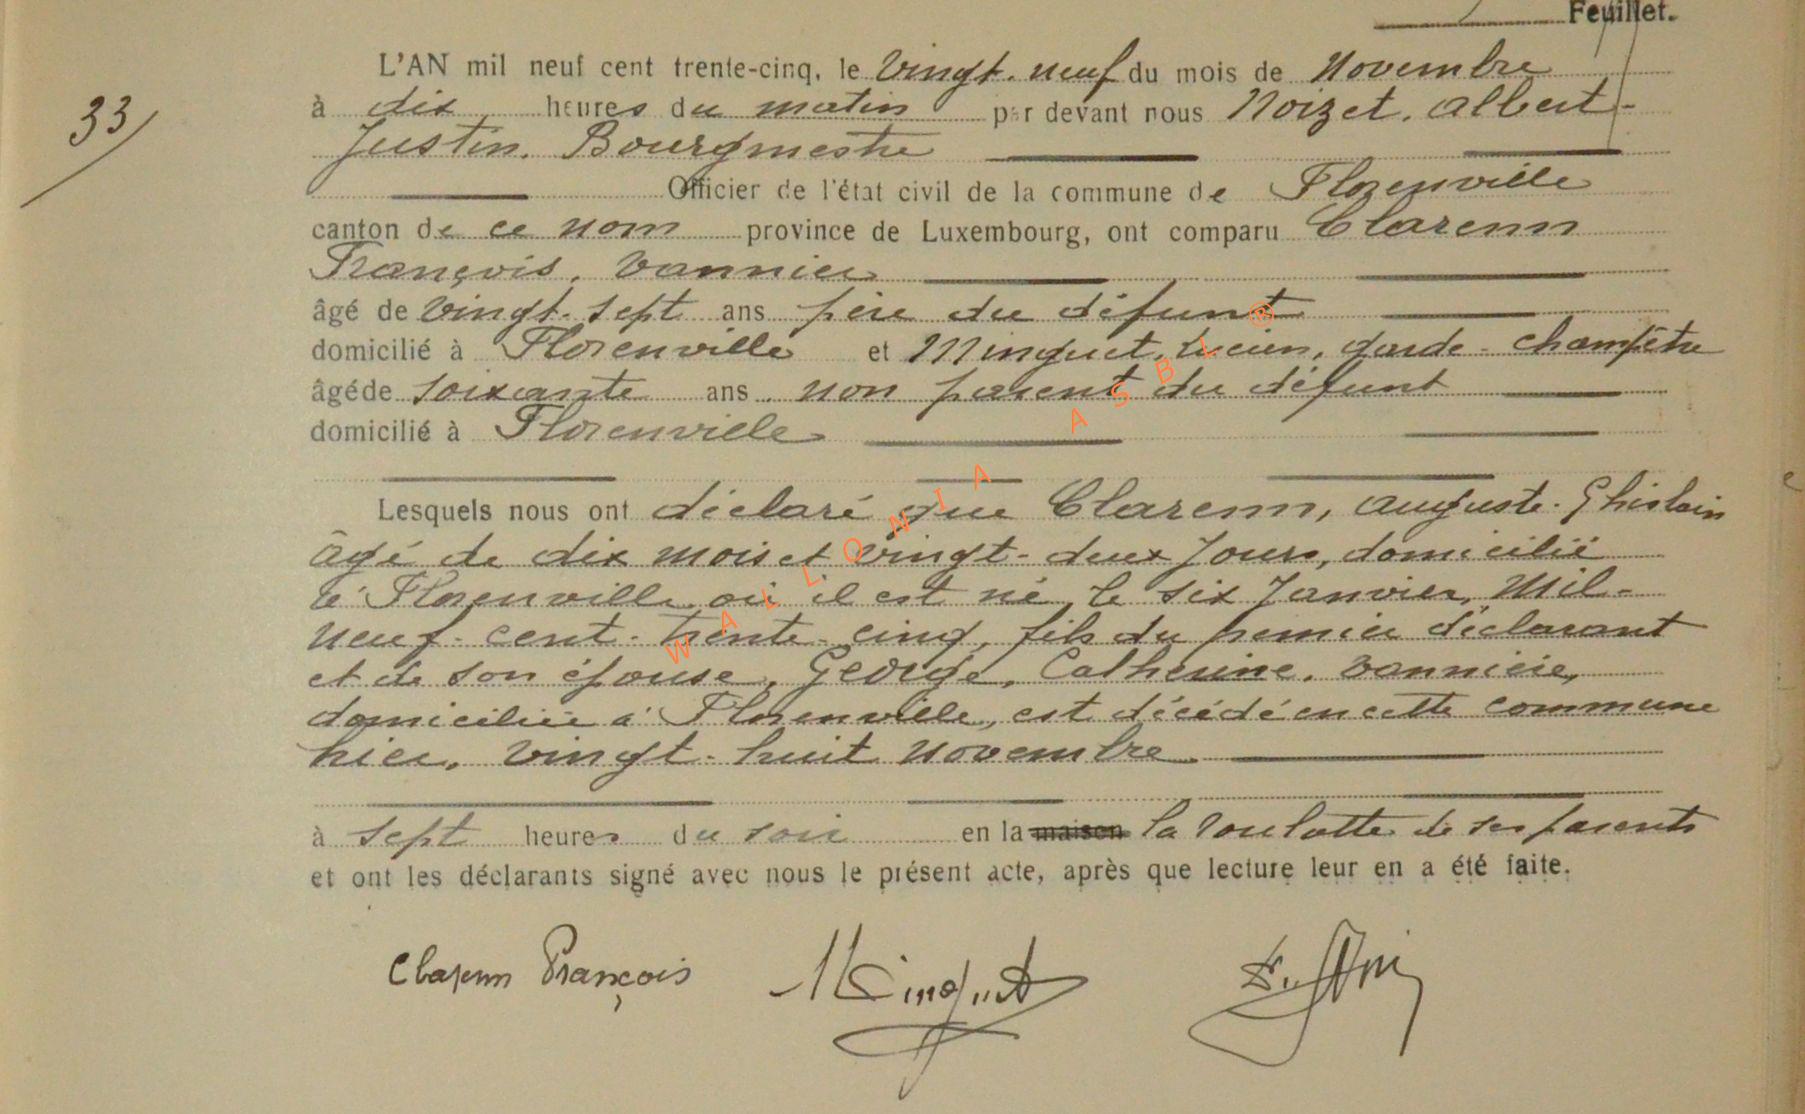 Feuillet.
L'AN mil neuf cent trente-cinq, le vingt-neuf du mois de Novembre
33
à dix heures du matin par devant nous Noizet, Albert-
Justin, Bourgmestre
Officier de l'état civil de la commune de Florenville
canton de ce nom province de Luxembourg, ont comparu Clarenn
François, vannier
âgé de vingt-sept ans père du défunt
domicilié à Florenville et Minguet, Lucien, garde-champêtre
âgé de soixante ans non parent du défunt
domicilié à Florenville
Lesquels nous ont déclaré que Clarenn, Auguste-Ghislain
âgé de dix mois et vingt-deux jours, domicilié
à Florenville où il est né le six Janvier, mil-
neuf-cent-trente-cinq, fils du premier déclarant
et de son épouse, George, Catherine, vannière,
domiciliée à Florenville, est décédé en cette commune
hier, vingt-huit Novembre
à sept heures du soir en la maison la roulotte de ses parents
et ont les déclarants signé avec nous le présent acte, après que lecture leur en a été faite.
Clarenn François Minguet
WALLONIA ASBL ®